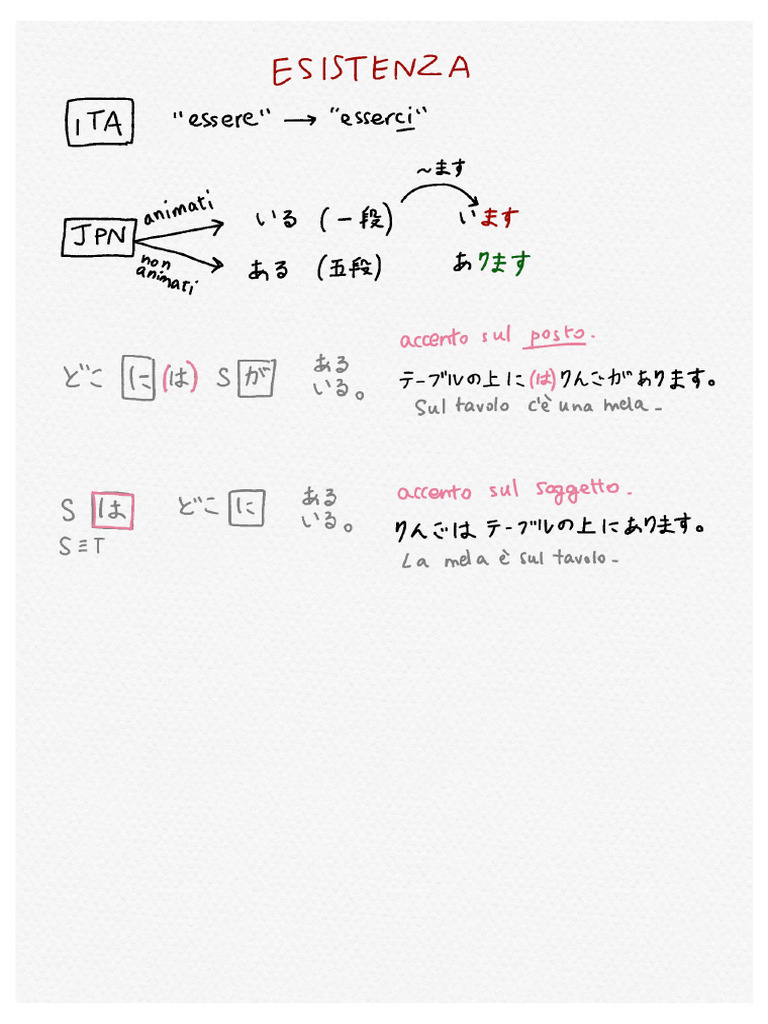 ESISTENZA
ITA "essere" → "esserci"
~ます
animati いる (一段) います
JPN
non animati ある (五段) あります
accento sul posto.
どこ に (は) S が ある いる。
テーブルの上に(は)りんごがあります。
Sul tavolo c'è una mela.
accento sul soggetto.
S は どこ に ある いる。
りんごは テーブルの上にあります。
S≡T
La mela è sul tavolo.